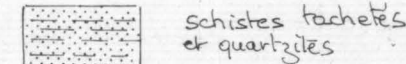 schistes tachetés
et quartzites